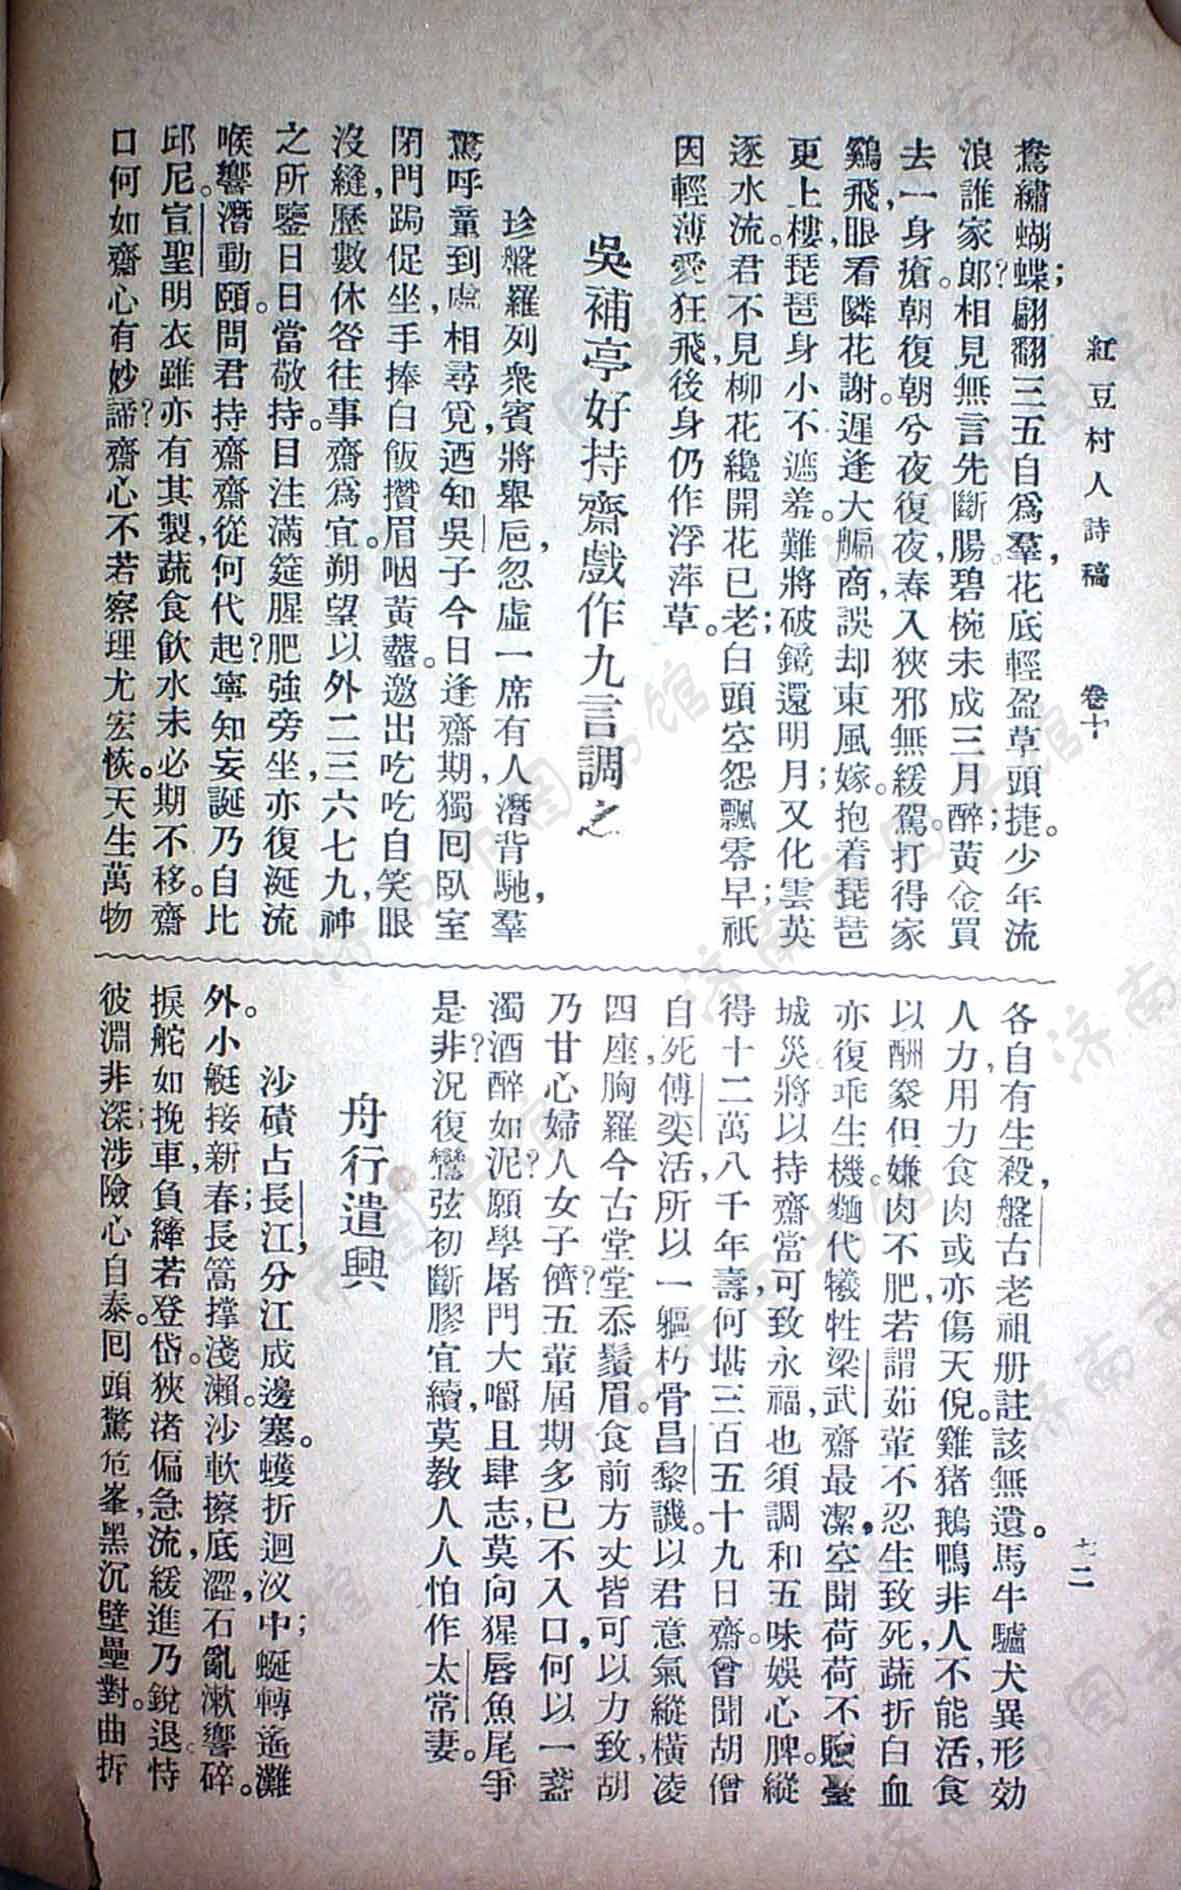 紅豆村人詩稿　卷十　七二
鴦繡蝴蝶；翩翻三五自爲羣，花底輕盈草頭捷。少年流
浪誰家郎？相見無言先斷腸。碧椀未成三月醉；黃金買
去一身瘡。朝復朝兮夜復夜，春入狹邪無緩駕。打得家
鷄飛，眼看隣花謝。遲逢大艑商，誤却東風嫁。抱着琵琶
更上樓，琵琶身小不遮羞。難將破鏡還明月；又化雲英
逐水流。君不見柳花纔開花已老；白頭空怨飄零早。祇
因輕薄愛狂飛，後身仍作浮萍草。
吳補亭好持齋戲作九言調之
珍盤羅列衆賓將舉巵，忽虛一席有人潛背馳，羣
驚呼童到處相尋覓，迺知吳子今日逢齋期，獨回臥室
閉門跼促坐，手捧白飯攢眉咽黃虀。邀出吃吃自笑眼
沒縫，歷數休咎往事齋爲宜。朔望以外二三六七九，神
之所鑒日日當敬持。日注滿筵腥肥強旁坐，亦復涎流
喉響潛動頤。問君持齋齋從何代起？寧知妄誕乃自比
邱尼。宣聖明衣雖亦有其製，蔬食飲水未必期不移。齋
口何如齋心有妙諦？齋心不若察理尤宏恢。天生萬物
各自有生殺，盤古老祖册註該無遺。馬牛驢犬異形効
人力，用力食肉或亦傷天倪。雞猪鵝鴨非人不能活，食
以酬豢但嫌肉不肥。若謂茹葷不忍生致死，蔬折白血
亦復乖生機。麵代犧牲梁武齋最潔，空聞荷荷不贖臺
城災。將以持齋當可致永福，也須調和五味娛心脾。縱
得十二萬八千年壽，何堪三百五十九日齋。曾聞胡僧
自死傅奕活，所以一軀朽骨昌黎譏。以君意氣縱橫凌
四座，胸羅今古堂堂忝鬚眉。食前方丈皆可以力致，胡
乃甘心婦人女子儕？五葷屆期多已不入口，何以一盞
濁酒醉如泥？願學屠門大嚼且肆志，莫向猩唇魚尾爭
是非。況復鸞弦初斷膠宜續，莫教人人怕作太常妻。
舟行遣興
沙磧占長江，分江成邊塞。蠖折迴汊中；蜒轉遙灘
外。小艇接新春；長篙撑淺瀨。沙軟擦底澀，石亂漱響碎。
捩舵如挽車，負縴若登岱。狹渚偏急流，緩進乃銳退。恃
彼淵非深；涉險心自泰。回頭驚危峯，黑沉壁壘對。曲折